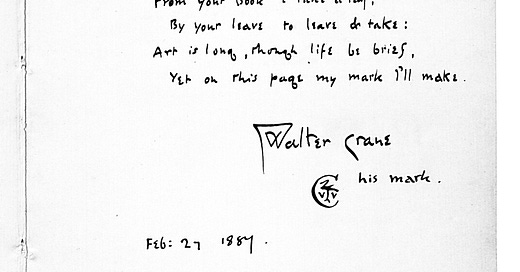 From your Book I take a leaf,
By your leave to leave & take:
Art is long, though life be brief,
Yet on this page my mark I'll make.
Walter Crane
his mark.
Feb: 27 1887.